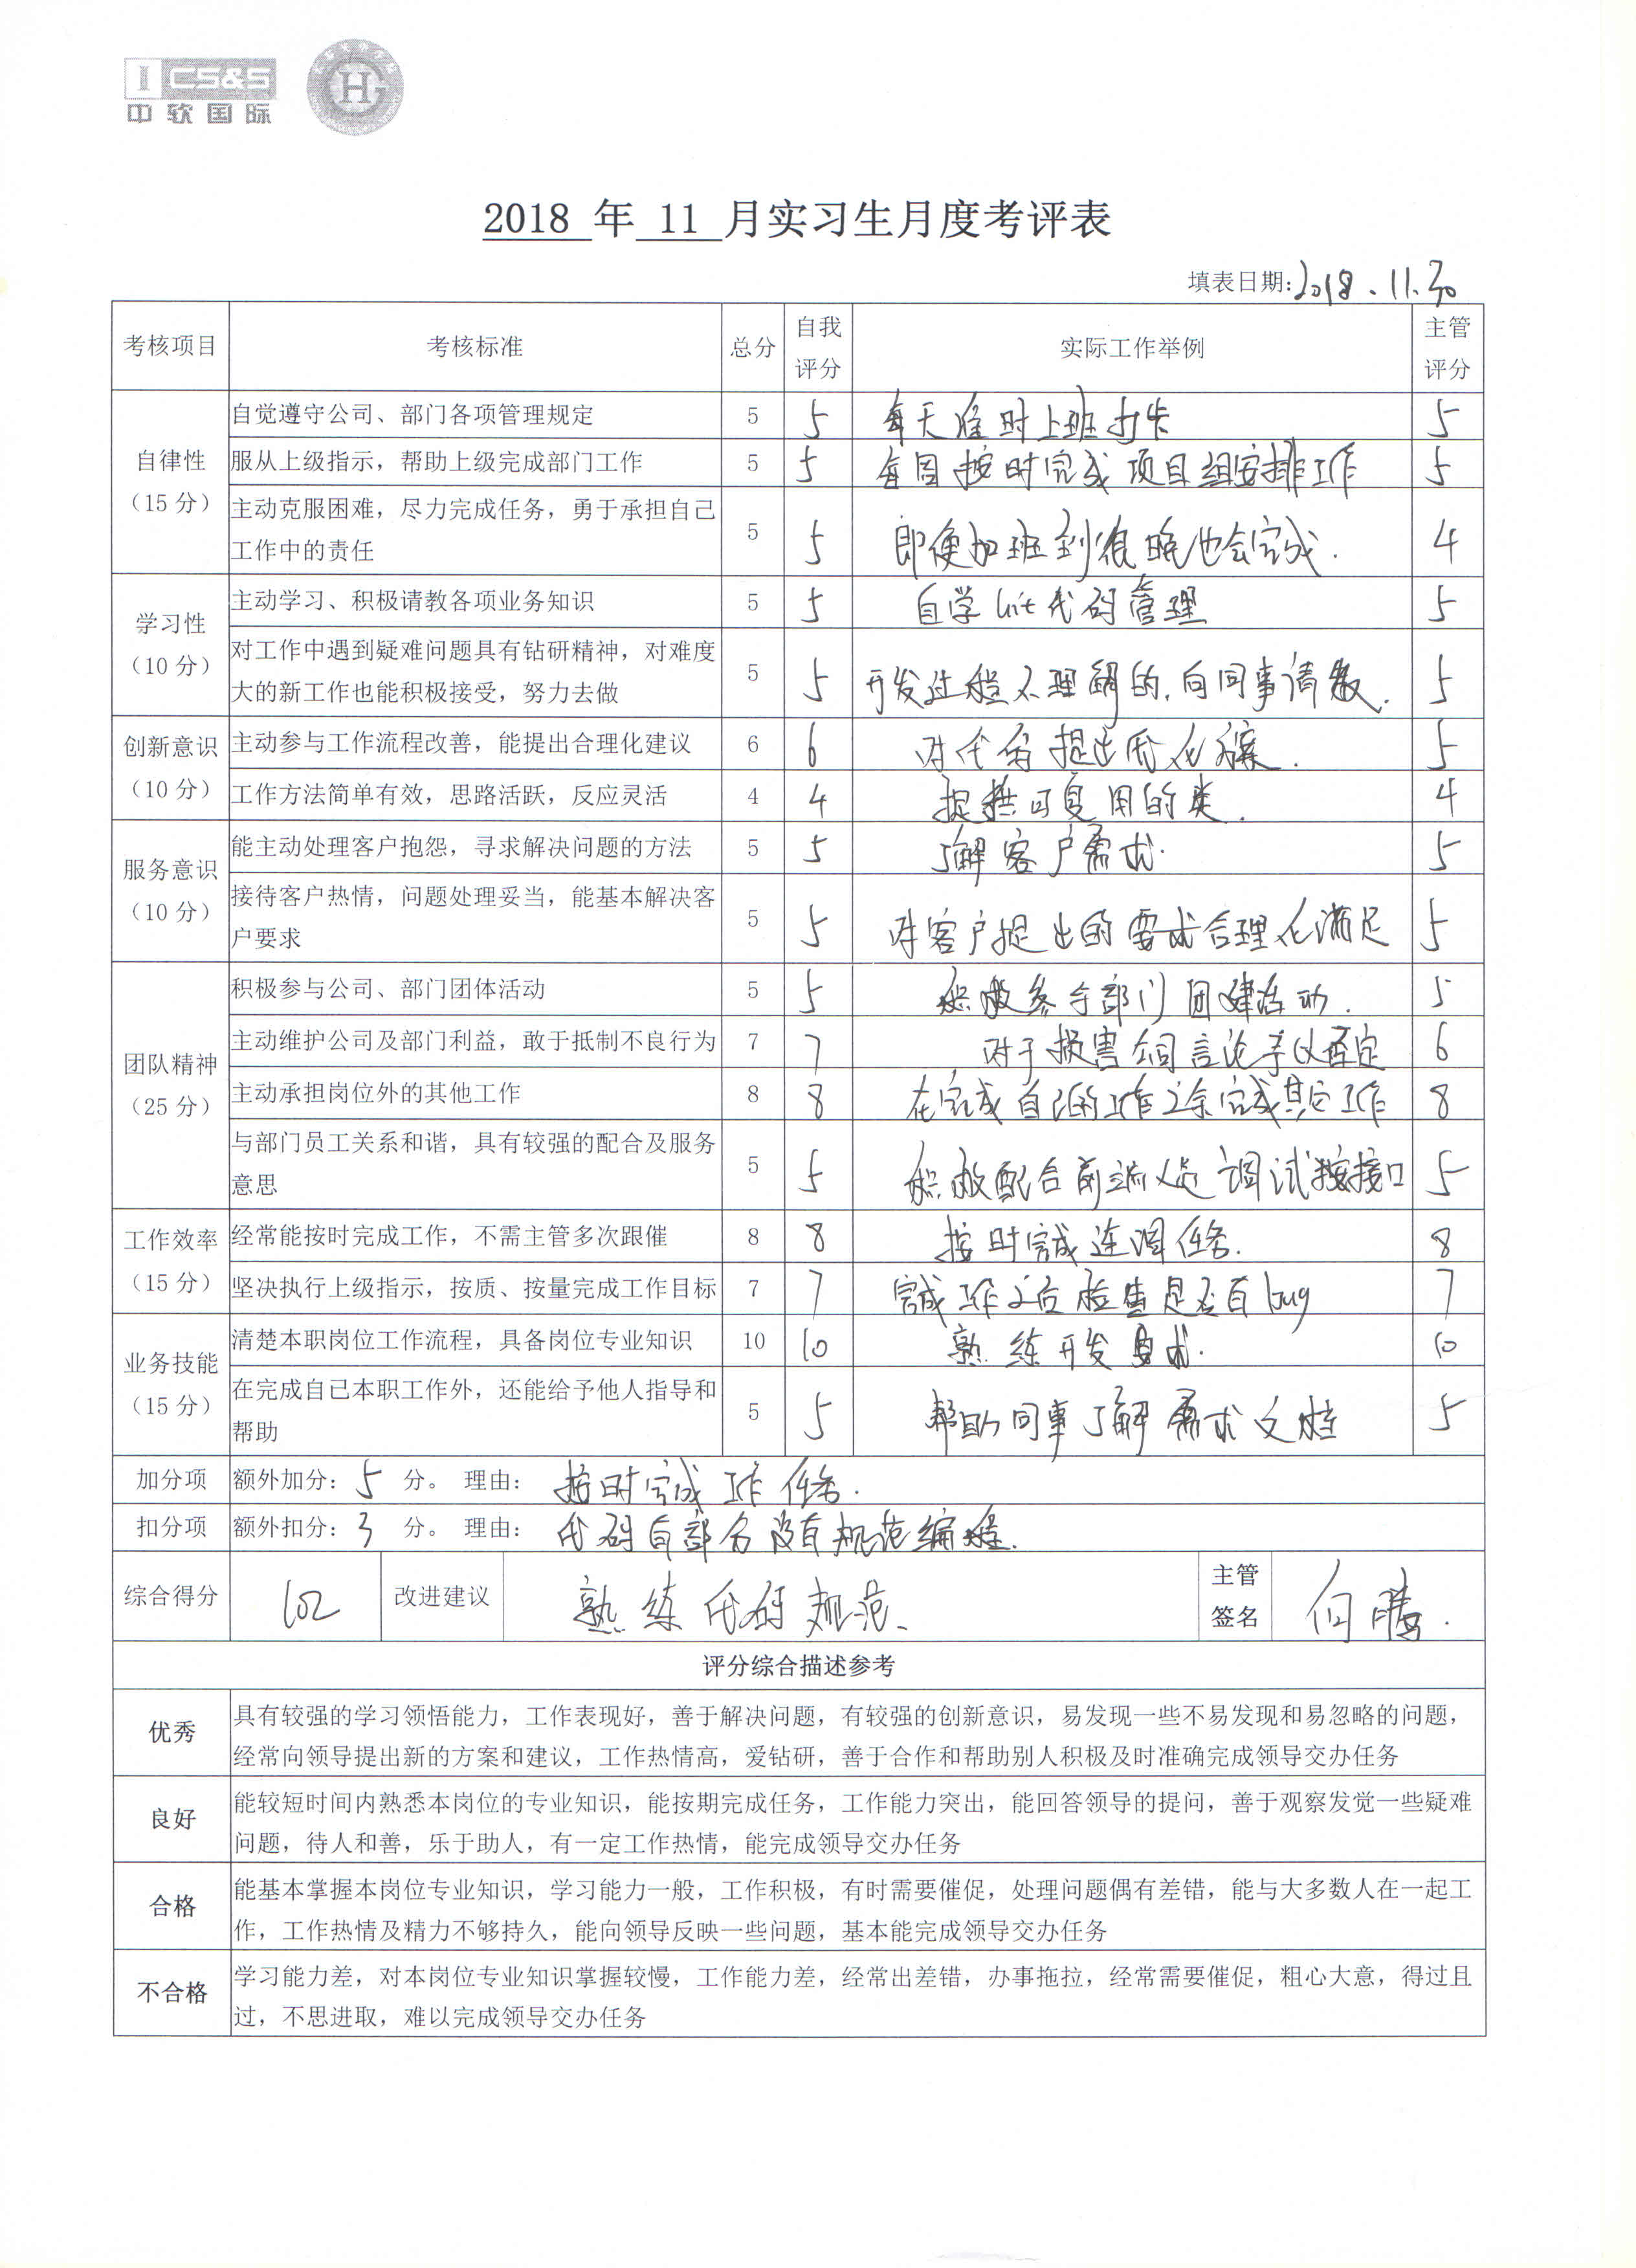 I CS&S
中软国际
2018 年 11 月实习生月度考评表
填表日期:2018.11.30
考核项目 考核标准 总分 自我评分 实际工作举例 主管评分
自律性（15 分）
自觉遵守公司、部门各项管理规定 5 5 每天准时上班打卡 5
服从上级指示，帮助上级完成部门工作 5 5 每周按时完成项目组安排工作 5
主动克服困难，尽力完成任务，勇于承担自己
工作中的责任 5 5 即使加班到很晚也会完成. 4
学习性（10 分）
主动学习、积极请教各项业务知识 5 5 自学Git代码管理 5
对工作中遇到疑难问题具有钻研精神，对难度
大的新工作也能积极接受，努力去做 5 5 开发过程不理解的,向同事请教. 5
创新意识（10 分）
主动参与工作流程改善，能提出合理化建议 6 6 对代码提出优化方案. 5
工作方法简单有效，思路活跃，反应灵活 4 4 提供可复用的类. 4
服务意识（10 分）
能主动处理客户抱怨，寻求解决问题的方法 5 5 了解客户需求. 5
接待客户热情，问题处理妥当，能基本解决客
户要求 5 5 对客户提出的要求合理化满足 5
团队精神（25 分）
积极参与公司、部门团体活动 5 5 积极参与部门团建活动. 5
主动维护公司及部门利益，敢于抵制不良行为 7 7 对于损害公司言论予以否定 6
主动承担岗位外的其他工作 8 8 在完成自己的工作之余完成其它工作 8
与部门员工关系和谐，具有较强的配合及服务
意思 5 5 积极配合前端人员调试接口 5
工作效率（15 分）
经常能按时完成工作，不需主管多次跟催 8 8 按时完成连调任务. 8
坚决执行上级指示，按质、按量完成工作目标 7 7 完成工作之后检查是否有bug 7
业务技能（15 分）
清楚本职岗位工作流程，具备岗位专业知识 10 10 熟练开发要求. 10
在完成自己本职工作外，还能给予他人指导和
帮助 5 5 帮助同事了解需求文档 5
加分项 额外加分：5 分。 理由： 按时完成工作任务.
扣分项 额外扣分：3 分。 理由： 代码有部分没有规范编程.
综合得分 102 改进建议 熟练代码规范. 主管签名 向腾.
评分综合描述参考
优秀
具有较强的学习领悟能力，工作表现好，善于解决问题，有较强的创新意识，易发现一些不易发现和易忽略的问题，
经常向领导提出新的方案和建议，工作热情高，爱钻研，善于合作和帮助别人积极及时准确完成领导交办任务
良好
能较短时间内熟悉本岗位的专业知识，能按期完成任务，工作能力突出，能回答领导的提问，善于观察发觉一些疑难
问题，待人和善，乐于助人，有一定工作热情，能完成领导交办任务
合格
能基本掌握本岗位专业知识，学习能力一般，工作积极，有时需要催促，处理问题偶有差错，能与大多数人在一起工
作，工作热情及精力不够持久，能向领导反映一些问题，基本能完成领导交办任务
不合格
学习能力差，对本岗位专业知识掌握较慢，工作能力差，经常出差错，办事拖拉，经常需要催促，粗心大意，得过且
过，不思进取，难以完成领导交办任务